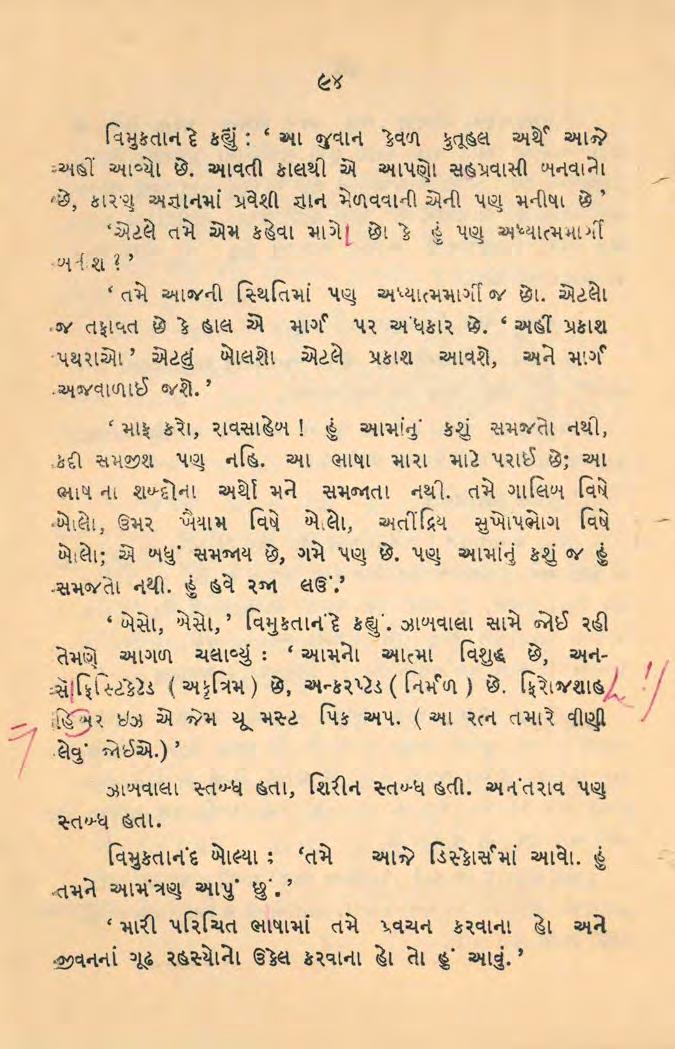 ૯૪
વિમુકતાનંદે કહ્યું : ‘ આ જુવાન કેવળ કુતૂહલ અર્થે આજે
અહીં આવ્યો છે. આવતી કાલથી એ આપણો સહપ્રવાસી બનવાનો
છે, કારણુ અજ્ઞાનમાં પ્રવેશી જ્ઞાન મેળવવાની એની પણ મનીષા છે ’
‘એટલે તમે એમ કહેવા માગો છો કે હું પણ અધ્યાત્મમાર્ગી
બનીશ ? ’
‘ તમે આજની સ્થિતિમાં પણ અધ્યાત્મમાર્ગી જ છો. એટલો
જ તફાવત છે કે હાલ એ માર્ગ પર અંધકાર છે. ‘ અહીં પ્રકાશ
પથરાઓ ’ એટલું બોલશો એટલે પ્રકાશ આવશે, અને માર્ગ
અજવાળાઈ જશે. ’
‘ માફ કરો, રાવસાહેબ ! હું આમાંનું કશું સમજતો નથી,
કદી સમજીશ પણ નહિ. આ ભાષા મારા માટે પરાઈ છે; આ
ભાષાના શબ્દોના અર્થો મને સમજાતા નથી. તમે ગાલિબ વિષે
બોલો, ઉમર ખૈયામ વિષે બોલો, અતીંદ્રિય સુખોપભોગ વિષે
બોલો; એ બધું સમજાય છે, ગમે પણ છે. પણ આમાંનું કશું જ હું
સમજતો નથી. હું હવે રજા લઉં.’
‘ બેસો, બેસો, ’ વિમુકતાનંદે કહ્યું. ઝાબવાલા સામે જોઈ રહી
તેમણે આગળ ચલાવ્યું : ‘ આમનો આત્મા વિશુદ્ધ છે, અન-
સૉફિસ્ટિકેટેડ ( અકૃત્રિમ ) છે, અન્કરપ્ટેડ ( નિર્મળ ) છે. ફિરોજશાહ
હિઅર ઇઝ એ જેમ યૂ મસ્ટ પિક અપ. ( આ રત્ન તમારે વીણી
લેવું જોઈએ.) ’
ઝાબવાલા સ્તબ્ધ હતા, શિરીન સ્તબ્ધ હતી. અનંતરાવ પણુ
સ્તબ્ધ હતા.
વિમુકતાનંદ બોલ્યા ; ‘તમે આજે ડિસ્કોર્સમાં આવો. હું
તમને આમંત્રણ આપું છું. ’
‘ મારી પરિચિત ભાષામાં તમે પ્રવચન કરવાના હો અને
જીવનનાં ગૂઢ રહસ્યોનો ઉકેલ કરવાના હો તો હું આવું. ’